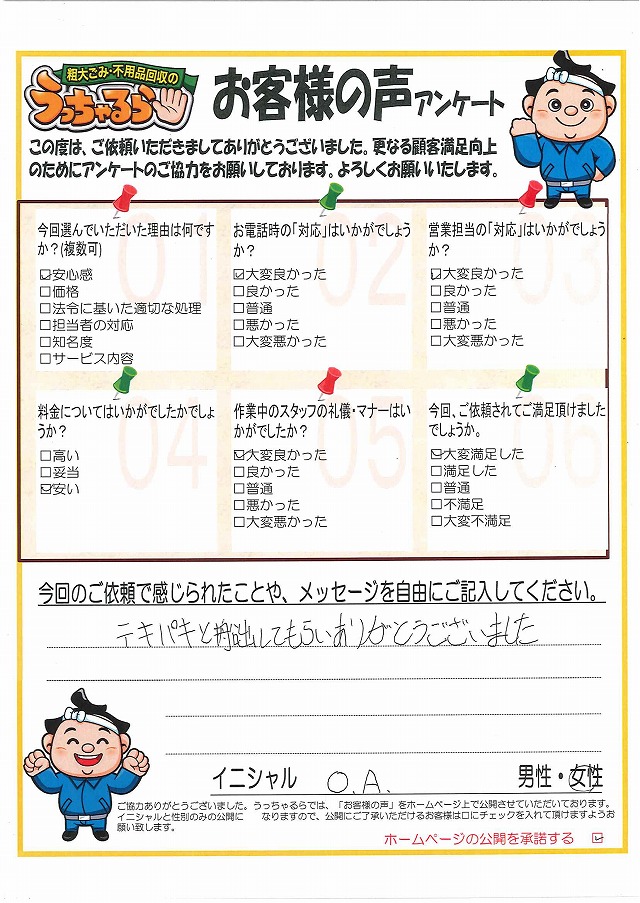 粗大ごみ・不用品回収の
うっちゃるら
お客様の声アンケート
この度は、ご依頼いただきましてありがとうございました。更なる顧客満足向上
のためにアンケートのご協力をお願いしております。よろしくお願いいたします。
01
今回選んでいただいた理由は何です
か?(複数可)
☑安心感
□価格
□法令に基いた適切な処理
□担当者の対応
□知名度
□サービス内容
02
お電話時の「対応」はいかがでしょう
か?
☑大変良かった
□良かった
□普通
□悪かった
□大変悪かった
03
営業担当の「対応」はいかがでしょう
か?
☑大変良かった
□良かった
□普通
□悪かった
□大変悪かった
04
料金についてはいかがでしたかでしょ
うか?
□高い
□妥当
☑安い
05
作業中のスタッフの礼儀・マナーはい
かがでしたか?
☑大変良かった
□良かった
□普通
□悪かった
□大変悪かった
06
今回、ご依頼されてご満足頂けました
でしょうか。
☑大変満足した
□満足した
□普通
□不満足
□大変不満足
今回のご依頼で感じられたことや、メッセージを自由にご記入してください。
テキパキと搬出してもらいありがとうございました
イニシャル O.A. 男性・女性
ご協力ありがとうございました。うっちゃるらでは、「お客様の声」をホームページ上で公開させていただいております。
イニシャルと性別のみの公開に なりますので、公開にご了承いただけるお客様は口にチェックを入れて頂けますようお
願い致します。
ホームページの公開を承諾する ☑